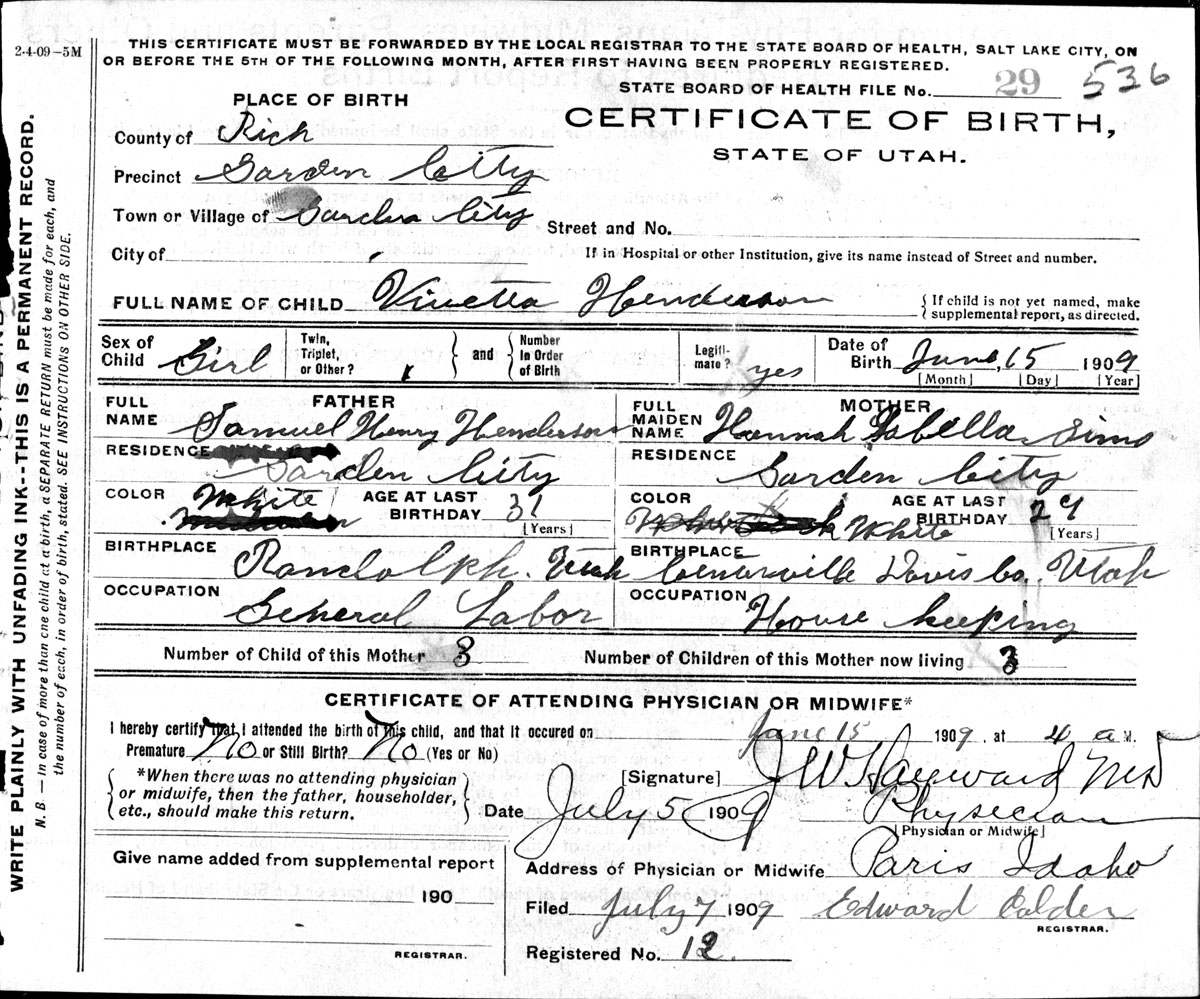 2-4-09-5M
THIS CERTIFICATE MUST BE FORWARDED BY THE LOCAL REGISTRAR TO THE STATE BOARD OF HEALTH, SALT LAKE CITY, ON
OR BEFORE THE 5TH OF THE FOLLOWING MONTH, AFTER FIRST HAVING BEEN PROPERLY REGISTERED.
STATE BOARD OF HEALTH FILE No. 29 536
PLACE OF BIRTH
CERTIFICATE OF BIRTH,
STATE OF UTAH.
County of Rich
Precinct Garden City
Town or Village of Garden City
Street and No.
City of
If in Hospital or other Institution, give its name instead of Street and number.
FULL NAME OF CHILD Vinetta Henderson
{ If child is not yet named, make
supplemental report, as directed.
Sex of Child Girl
Twin, Triplet, or Other? } and { Number in Order of Birth
Legiti-mate? yes
Date of Birth June, 15 1909
[Month] [Day] [Year]
FATHER
FULL NAME Samuel Henry Henderson
MOTHER
FULL MAIDEN NAME Hannah Isbella Sims
RESIDENCE Garden City
RESIDENCE Garden City
COLOR White
AGE AT LAST BIRTHDAY 31 [Years]
COLOR White
AGE AT LAST BIRTHDAY 29 [Years]
BIRTHPLACE Randolph. Utah
BIRTHPLACE Davis Co. Utah
OCCUPATION General Labor
OCCUPATION House keeping
Number of Child of this Mother 3
Number of Children of this Mother now living 3
CERTIFICATE OF ATTENDING PHYSICIAN OR MIDWIFE*
I hereby certify that I attended the birth of this child, and that it occured on June 15 1909. at 4 a M.
Premature No or Still Birth? No (Yes or No)
{ *When there was no attending physician
or midwife, then the father, householder,
etc., should make this return. }
[Signature] J W Hayward MD
Date July 5 1909 Physician
[Physician or Midwife]
Give name added from supplemental report
190
REGISTRAR.
Address of Physician or Midwife Paris Idaho
Filed July 7 1909 Edward Calder
REGISTRAR.
Registered No. 12.
WRITE PLAINLY WITH UNFADING INK--THIS IS A PERMANENT RECORD.
N. B. — In case of more than one child at a birth, a SEPARATE RETURN must be made for each, and
the number of each, in order of birth, stated. SEE INSTRUCTIONS ON OTHER SIDE.